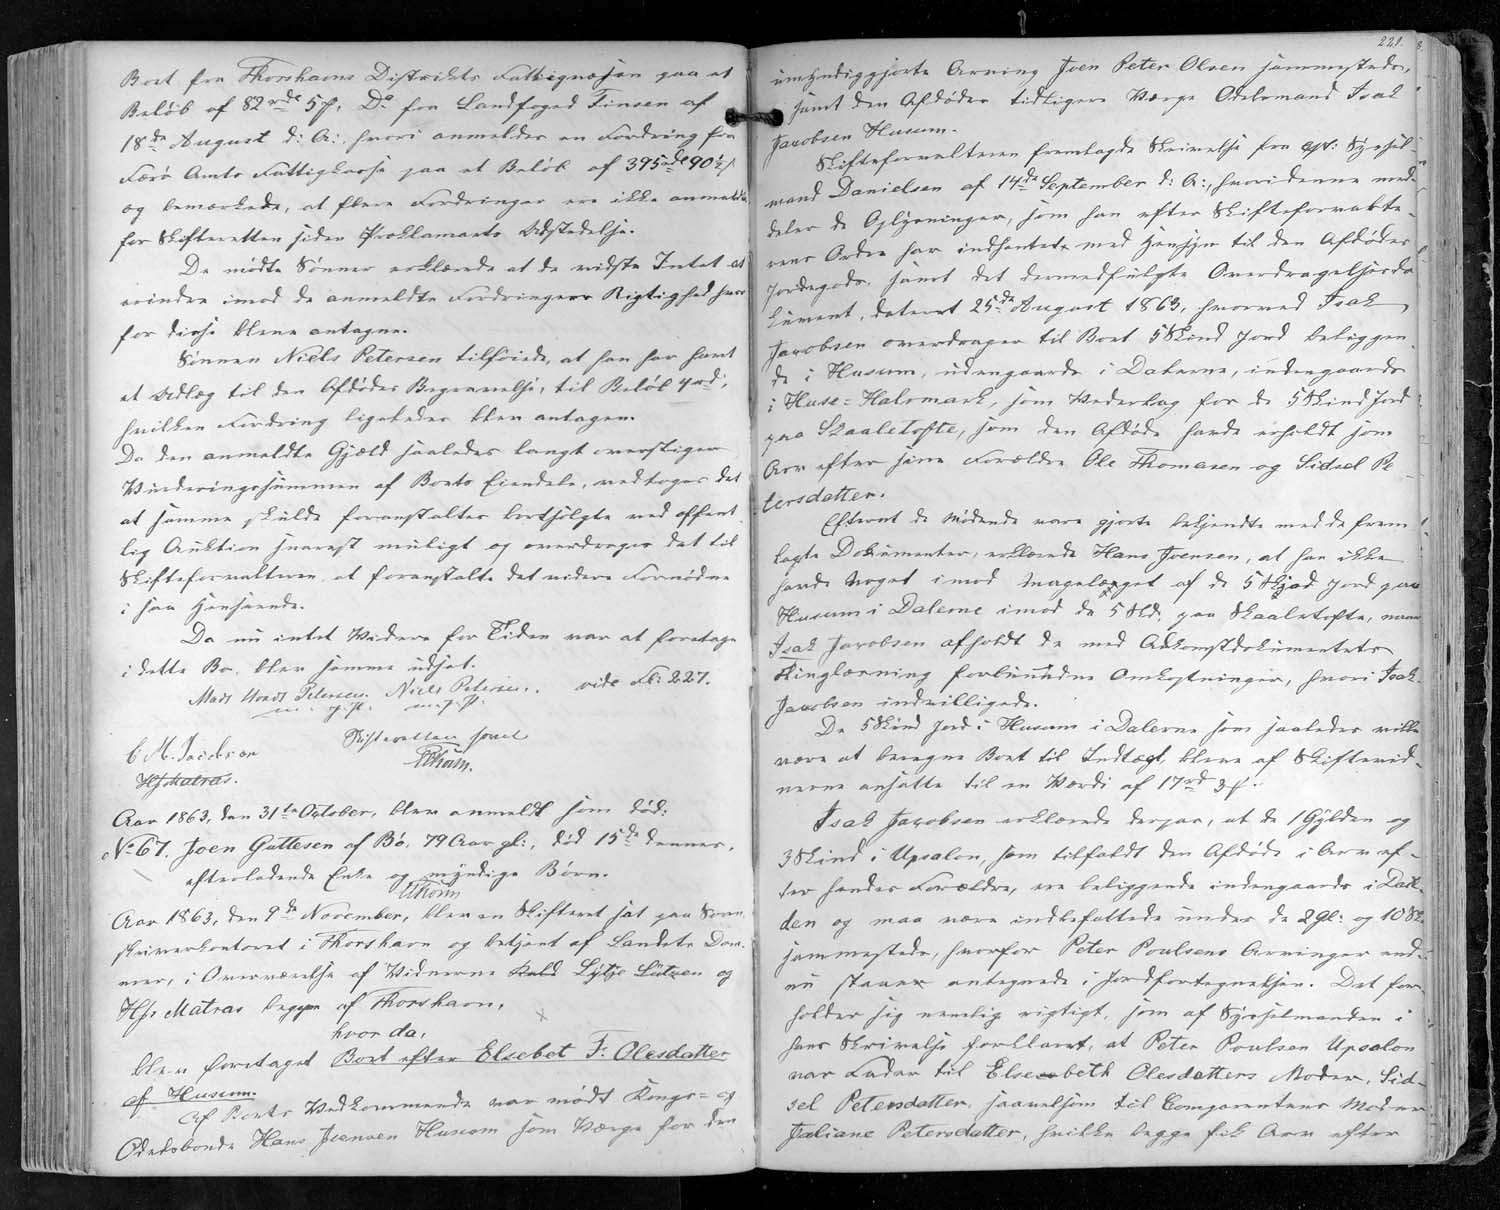 Boet fra Thorshavns Distrikts Fattigvæsen paa et
Beløb af 82 rd 5 ſ, Do fra Landfoged Finsen af
18de August d: A: hvori anmeldes en Fordring fra
Færø Amts Fattigkasse paa et Beløb af 395 rd 90½ ſ
og bemærkede, at flere Fordringer ere ikke anmeldte
for Skifteretten siden Proklamaets Udstedelse.
De mødte Sønner erklærede at de vidste Intet at
erindre imod de anmeldte Fordringers Rigtighed hvor
for disse bleve antagne.
Sønnen Niels Petersen tilføiede, at han har havt
et Udlæg til den Afdødes Begravelse, til Beløb 4 rd,
hvilken Fordring ligeledes blev antagen.
Da den anmeldte Gjæld saaledes langt overstiger
Vurderingssummen af Boets Eiendele, vedtoges det
at samme skulde foranstaltes bortsolgte ved offent
lig Auktion snarest muligt og overdroges det til
Skifteforvalteren at foranstalte det videre Fornødne
i saa Henseende.
Da nu intet Videre for Tiden var at foretage
i dette Bo, blev samme udsat.
Mads Petersen. Niels Petersen. vide Fol: 227.
m. p. P. m. p. P.
Skifteretten hævet
C M. Jacobsen
HJMatras.
Aar 1863, den 31te October, blev anmeldt som død:
No 67. Joen Guttesen af Bø, 79 Aar gl:, død 15de dennes,
efterladende Enke og myndige Børn.
Aar 1863, den 9de November, blev en Skifteret sat paa Soren
skriverkontoret i Thorshavn og betjent af Landets Dom-
mer, i Overværelse af Vidnerne Lütje Lützen og
HJ. Matras begge af Thorshavn,
hvor da,
blev foretaget Boet efter Elsebet F. Olesdatter
af Husum.
Af Boets Vedkommende var mødt Kongs- og
Odelsbonde Hans Joensen Husum som Værge for den
221.
umyndiggjorte Arving Joen Peter Olsen sammesteds,
samt den Afdødes tidligere Værge Odelsmand Isak
Jacobsen Husum.
Skifteforvalteren fremlagde Skrivelse fra cst: Syssel-
mand Danielsen af 14de September d: A:, hvori denne med-
deler de Oplysninger, som han efter Skifteforvalte-
rens Ordre har indhentet med Hensyn til den Afdødes
Jordegods, samt det dermedfulgte Overdragelsesdo
kument, dateret 25de August 1863, hvorved Isak
Jacobsen overdrager til Boet 5 Skind Jord beliggen
de i Husum, udengaards i Dalerne, indengaards
i Huse-Halvmark, som Vederlag for de 5 Skind Jord
paa Skaaletofte, som den Afdøde havde erholdt som
Arv efter sine Forældre Ole Thomasen og Sidsel Pe
tersdatter.
Efterat de Mødende vare gjorte bekjendte med de frem
lagte Dokumenter, erklærede Hans Joensen, at han ikke
havde Noget imod Magelægget af de 5 Skind Jord paa
Husum i Dalerne imod de 5 Skd. paa Skaaletofte, naar
Isak Jacobsen afholdt de med Adkomstdokumentets
Thinglæsning forbundne Omkostninger, hvori Isak
Jacobsen indvilligede.
De 5 Skind Jord i Husum i Dalerne som saaledes ville
være at beregne Boet til Indtægt, bleve af Skiftevid-
nerne ansatte til en Værdi af 17 rd 3 ſ.
Isak Jacobsen erklærede derpaa, at de 1 Gylden og
3 Skind i Upsalon, som tilfaldt den Afdøde i Arv ef-
ter hendes Forældre, ere beliggende indengaards i Dal-
den og maa være indbefattede under de 2 gl: og 10 Sk
sammesteds, hvorfor Peter Poulsens Arvinger end-
nu staaer antegnede i Jordfortegnelsen. Det for-
holder sig nemlig rigtigt, som af Sysselmanden i
hans Skrivelse forklaret, at Peter Poulsen Upsalon
var Fader til Elsebeth Olesdatters Moder, Sid-
sel Petersdatter, saavelsom til Comparentens Moder
Juliane Petersdatter, hvilke begge fik Arv efter